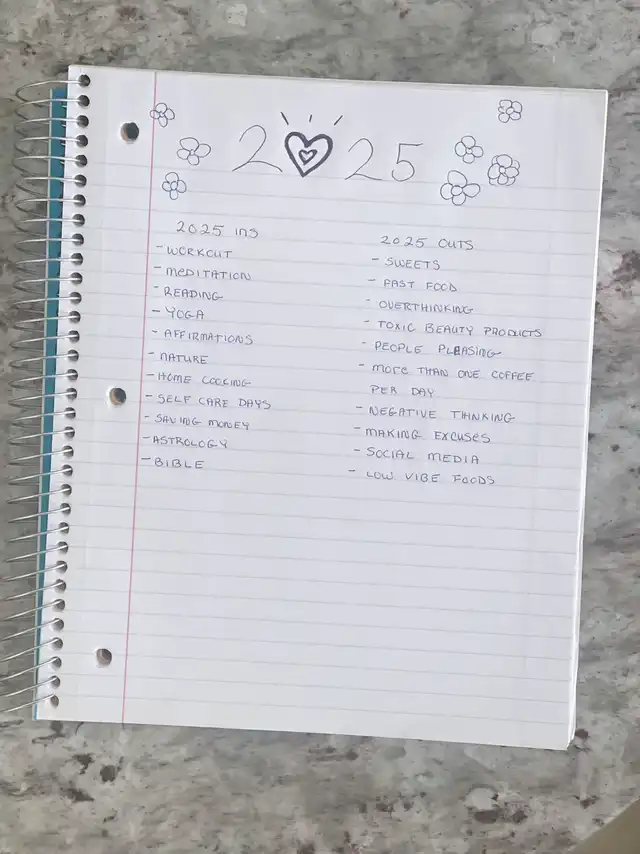 2025
2025 INS
- WORKOUT
- MEDITATION
- READING
- YOGA
- AFFIRMATIONS
- NATURE
- HOME COOKING
- SELF CARE DAYS
- SAVING MONEY
- ASTROLOGY
- BIBLE
2025 OUTS
- SWEETS
- FAST FOOD
- OVERTHINKING
- TOXIC BEAUTY PRODUCTS
- PEOPLE PLEASING
- MORE THAN ONE COFFEE
PER DAY
- NEGATIVE THINKING
- MAKING EXCUSES
- SOCIAL MEDIA
- LOW VIBE FOODS